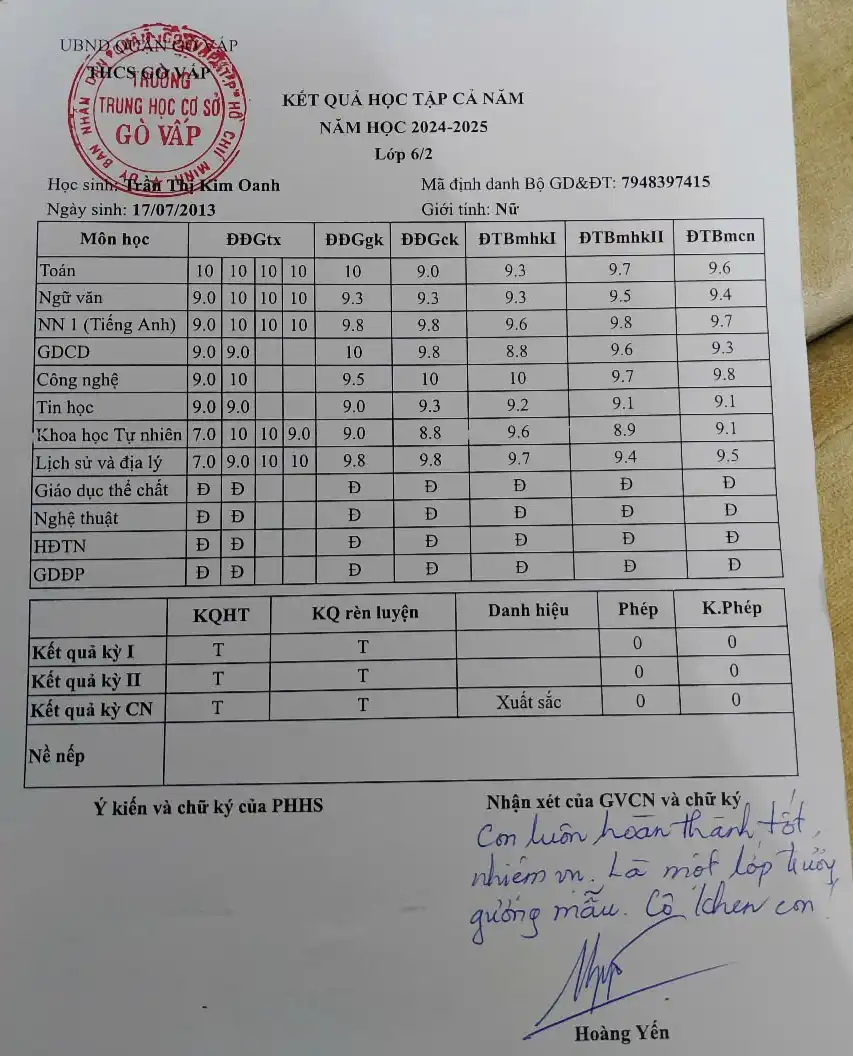 UBND QUẬN GÒ VẤP
THCS GÒ VẤP
TRƯỜNG
TRUNG HỌC CƠ SỞ
GÒ VẤP
ỦY BAN NHÂN DÂN QUẬN GÒ VẤP TP HỒ CHÍ MINH
KẾT QUẢ HỌC TẬP CẢ NĂM
NĂM HỌC 2024-2025
Lớp 6/2
Học sinh: Trần Thị Kim Oanh Mã định danh Bộ GD&ĐT: 7948397415
Ngày sinh: 17/07/2013 Giới tính: Nữ
Môn học ĐĐGtx ĐĐGgk ĐĐGck ĐTBmhkI ĐTBmhkII ĐTBmcn
Toán 10 10 10 10 10 9.0 9.3 9.7 9.6
Ngữ văn 9.0 10 10 10 9.3 9.3 9.3 9.5 9.4
NN 1 (Tiếng Anh) 9.0 10 10 10 9.8 9.8 9.6 9.8 9.7
GDCD 9.0 9.0 10 9.8 8.8 9.6 9.3
Công nghệ 9.0 10 9.5 10 10 9.7 9.8
Tin học 9.0 9.0 9.0 9.3 9.2 9.1 9.1
Khoa học Tự nhiên 7.0 10 10 9.0 9.0 8.8 9.6 8.9 9.1
Lịch sử và địa lý 7.0 9.0 10 10 9.8 9.8 9.7 9.4 9.5
Giáo dục thể chất Đ Đ Đ Đ Đ Đ Đ
Nghệ thuật Đ Đ Đ Đ Đ Đ Đ
HĐTN Đ Đ Đ Đ Đ Đ Đ
GDĐP Đ Đ Đ Đ Đ Đ Đ
KQHT KQ rèn luyện Danh hiệu Phép K.Phép
Kết quả kỳ I T T 0 0
Kết quả kỳ II T T 0 0
Kết quả kỳ CN T T Xuất sắc 0 0
Nề nếp
Ý kiến và chữ ký của PHHS Nhận xét của GVCN và chữ ký
Con luôn hoàn thành tốt
nhiệm vụ. Là một lớp trưởng
gương mẫu. Cô khen con!
Hoàng Yến